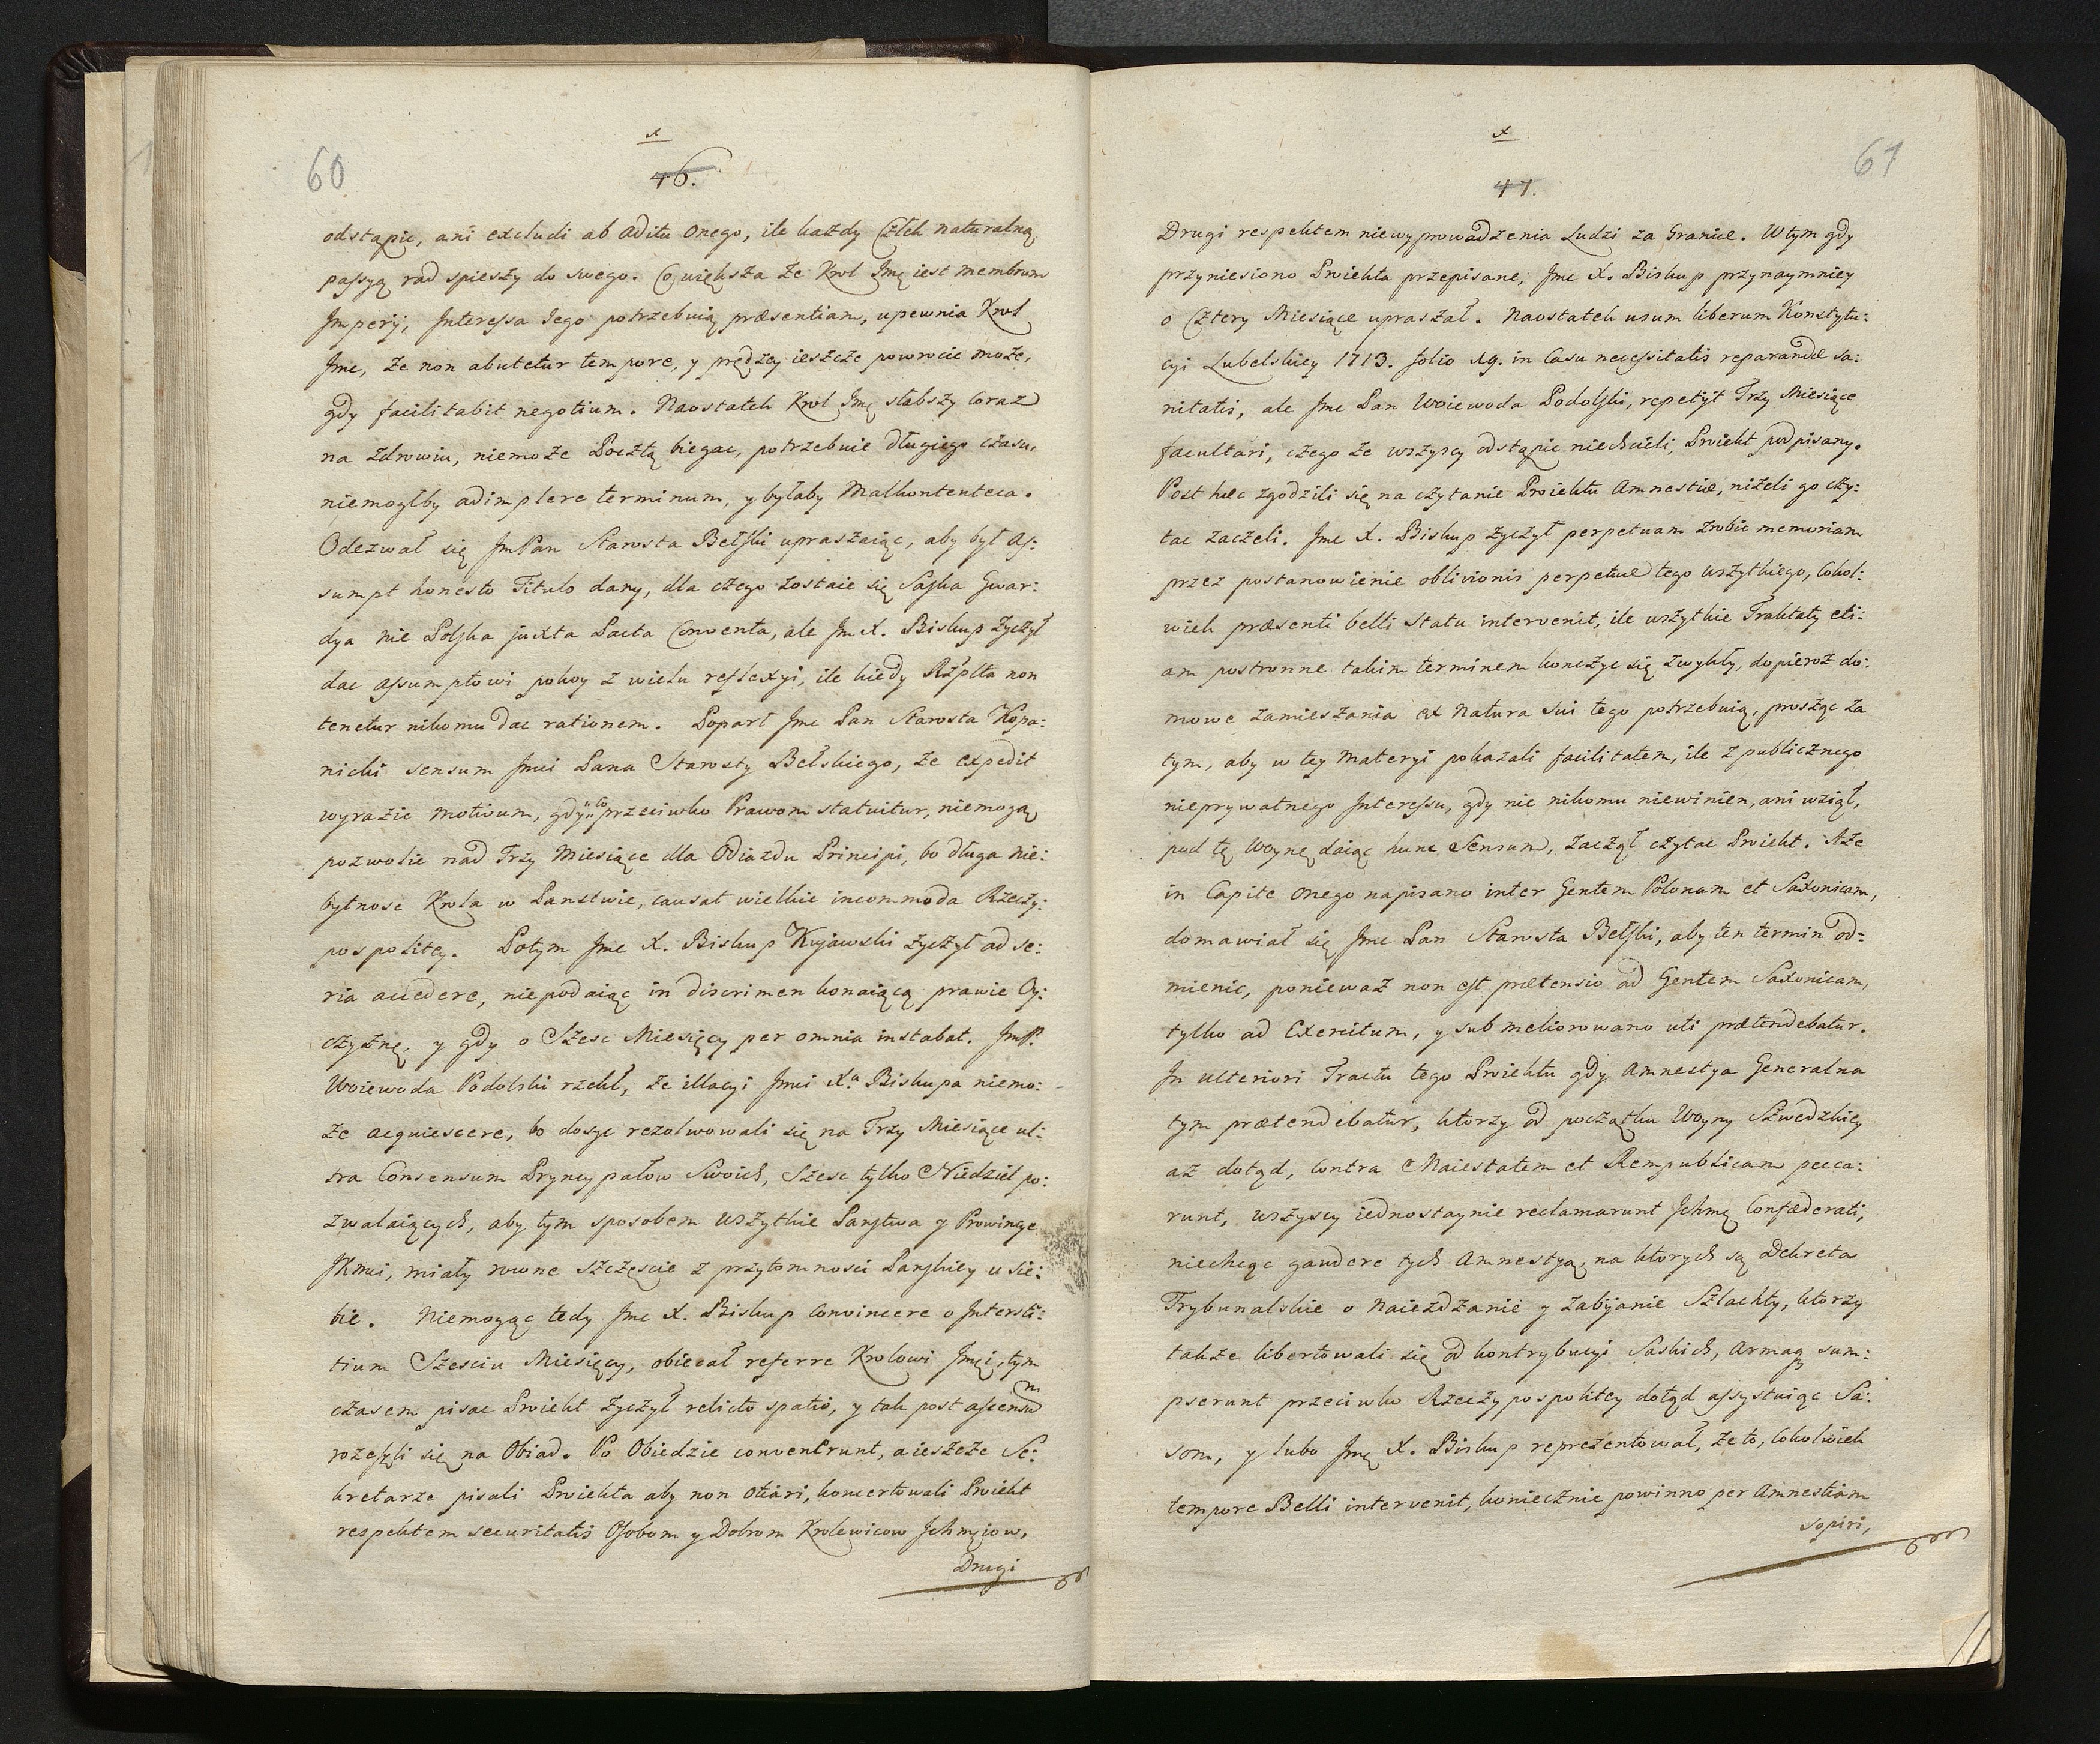 x
60
46.
odstąpic, ani excludi ab aditu onego, ile każdy Człek naturalną
passyą rad spieszy do swego. Co większa że Krol Jmę iest membrum
Imperij, Interessa Jego potrzebuią præsentiam, upewnia Krol
Jmc, że non abutetur tempore, y prędzey ieszcze powrocic może,
gdy facilitabit negotium. Naostatek Krol Jmę słabszy coraz
na Zdrowiu, niemoże Pocztą biegac, potrzebuie długiego czasu,
niemogłby adimplere terminum, y byłaby Malkontenteca.
Odezwał się JmPan Starosta Bełski upraszaiąc, aby był as:
sumpt honesto Titulo dany, dla czego zostaie się Saska Gwar:
dya nie Polska juxta Pacta Conventa, ale Jm X. Biskup życzył
dac assumptowi pokoy z wielu reflexyi, ile kiedy Rzplta non
tenetur nikomu dac rationem. Poparł Jmc Pan Starosta Kopa:
nicki sensum Jmci Pana Starosty Bełskiego, że expedit
wyrazic motivum, gdy co przeciwko Prawom statuitur, niemogąc
pozwolic nad Trzy Miesiące dla Odiazdu Principi, bo długa nie:
bytnosc Krola w Panstwie, causat wielkie incommoda Rzeczy:
pospolitey. Potym Jmc X. Biskup Kujawski życzył ad se:
ria accedere, niepodaiąc in discrimen konaiącą prawie Oy:
czyznę, y gdy o Szesc Miesięcy per omnia instabat. JmP.
Woiewoda Podolski rzekł, że illacyi Jmci Xa Biskupa niemo:
że acquiescere, bo dosyc rezolwowali się na Trzy Miesiące ul:
tra Consensum Pryncypałow Swoich, Szesc tylko Niedziel po:
zwalaiących, aby tym sposobem wszytkie Panstwa y Prowincye
JKmci, miały rowne szczęscie z przytomnosci Panskiey u sie:
bie. Niemogąc tedy Jmc X. Biskup convincere o Intersti:
tium Szesciu Miesięcy, obiecał referre Krolowi Jmci, tym
czasem pisac Proiekt życzył relicto spatio, y tak post ascensum
rozeszli się na Obiad. Po Obiedzie convenerunt, a ieszcze Se:
kretarze pisali Proiekta aby non otiari, koncertowali Proiekt
respektem securitatis Osobom y Dobrom Krolewicow Ichmciow,
Drugi
x
61
47.
Drugi respektem niewyprowadzenia Ludzi za Granice. Wtym gdy
przyniesiono Proiekta przepisane, Jmc X. Biskup przynaymniey
o Cztery Miesiące upraszał. Naostatek usum liberum Konstytu:
cyi Lubelskiey 1713. folio 19. in Casu necessitatis reparandæ sa:
nitatis, ale Jmc Pan Woiewoda Podolski, repetyt Trzy Miesiące
facultari, czego że wszyscy odstąpic niechcieli, Proiekt podpisany.
Post hæc zgodzili się na czytanie Proiektu Amnestiæ, niżeli go czy:
tac zaczeli. Jmc X. Biskup życzył perpetuam zrobic memoriam
przez postanowienie oblivionis perpetuæ tego wszytkiego, cokol:
wiek præsenti belli Statu intervenit, ile wszytkie Traktaty eti:
am postronne takim terminem konczyc się zwykły, dopieroż do:
mowe zamieszania ex Natura sui tego potrzebuią, prosząc za
tym, aby w tey materyi pokazali facilitatem, ile z publicznego
nieprywatnego Interessu, gdy nic nikomu niewinien, ani wziął,
pod tę Woynę, daiąc hunc Sensum, zaczął czytac Proiekt. Aże
in Capite onego napisano inter Gentem Polonam et Saxonicam,
domawiał się Jmc Pan Starosta Bełski, aby ten termin od:
mienic, ponieważ non est prætensio ad Gentem Saxonicam,
tylko ad Exercitum, y sub meliorowano uti prætendebatur.
In ulteriori Tractu tego Proiektu gdy Amnestya Generalna
tym prætendebatur, ktorzy od początku Woyny Szwedzkiey
aż dotąd, contra Maiestatem et Rempublicam pecca:
runt, wszyscy iednostaynie reclamarunt Ichmę Confæderati,
niechcąc gaudere tych Amnestyą, na ktorych są Dekreta
Trybunalskie o naiezdzanie y zabijanie Szlachty, ktorzy
także libertowali się od kontrybucyi Saskich, arma sum:
pserunt przeciwko Rzeczypospolitey dotąd assystuiąc Sa:
som, y lubo Jmę X. Biskup reprezentował, że to, cokolwiek
tempore Belli intervenit, koniecznie powinno per Amnestiam
sopiri,